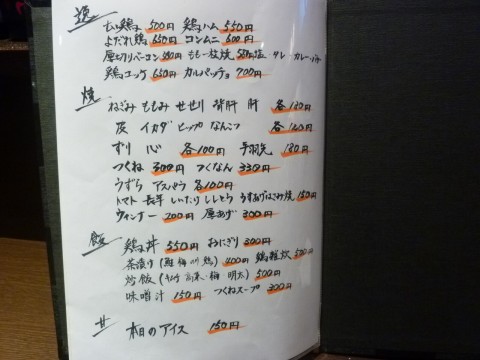 逸
むし鶏 500円 鶏ハム 550円
よだれ鶏 650円 コンムニ 600円
厚切りベーコン もも一枚焼 タレ・カレー
鶏ユッケ 650円 カルパッチョ 700円
焼
ねぎみ ももみ せせり 背肝 肝 各180円
皮 イカダ ピップ なんこつ 各120円
ずり 心 各100円 手羽先 180円
つくね 300円 つくなん 330円
うずら アスパラ 各100円
トマト 長芋 しいたけ ししとう うすあげはさみ焼 150円
ウィンナー 200円 厚あげ 300円
飯
鶏丼 550円 おにぎり 300円
茶漬け (鮭 梅 鶏) 400円 鶏雑炊 500円
炒飯 (キムチ 高菜・梅 明太) 500円
味噌汁 150円 つくねスープ 300円
甘
本日のアイス 150円